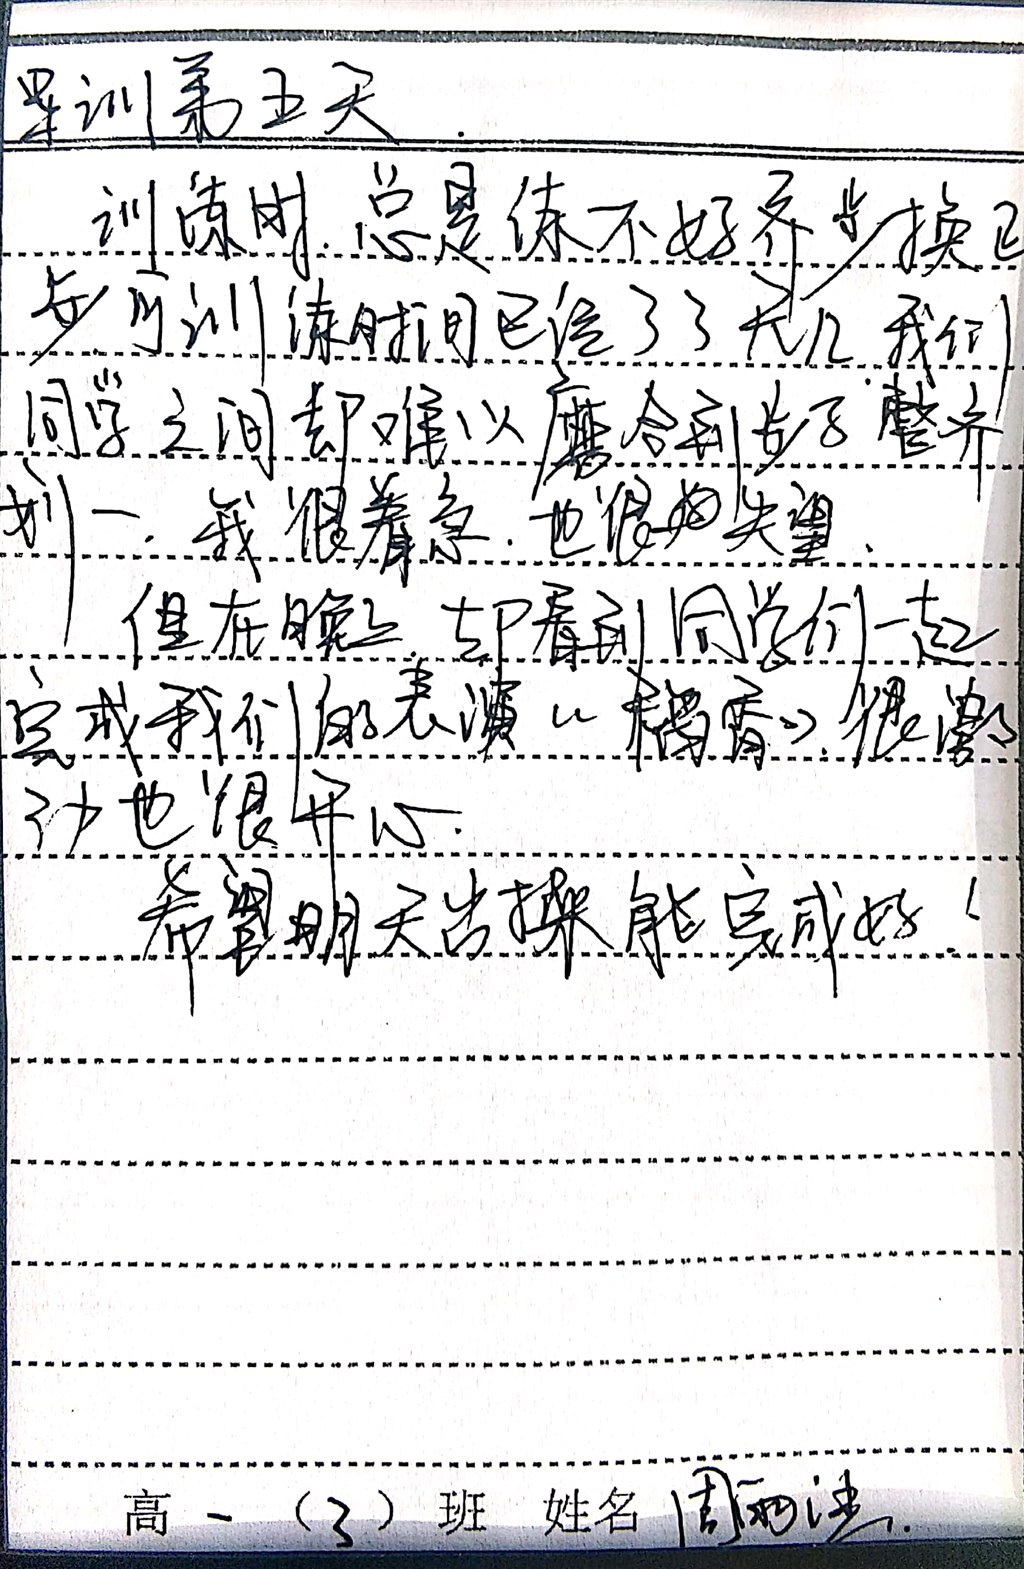 军训第五天
训练时.总是练不好齐步换正
步可训练时间已经了了无几 我们
同学之间却难以磨合到步子整齐
划一.我很着急.也很失望.
但在晚上 却看到同学们一起
完成我们的表演《稻香》.很激
动也很开心.
希望明天出操能完成好!
高一(3)班 姓名 周